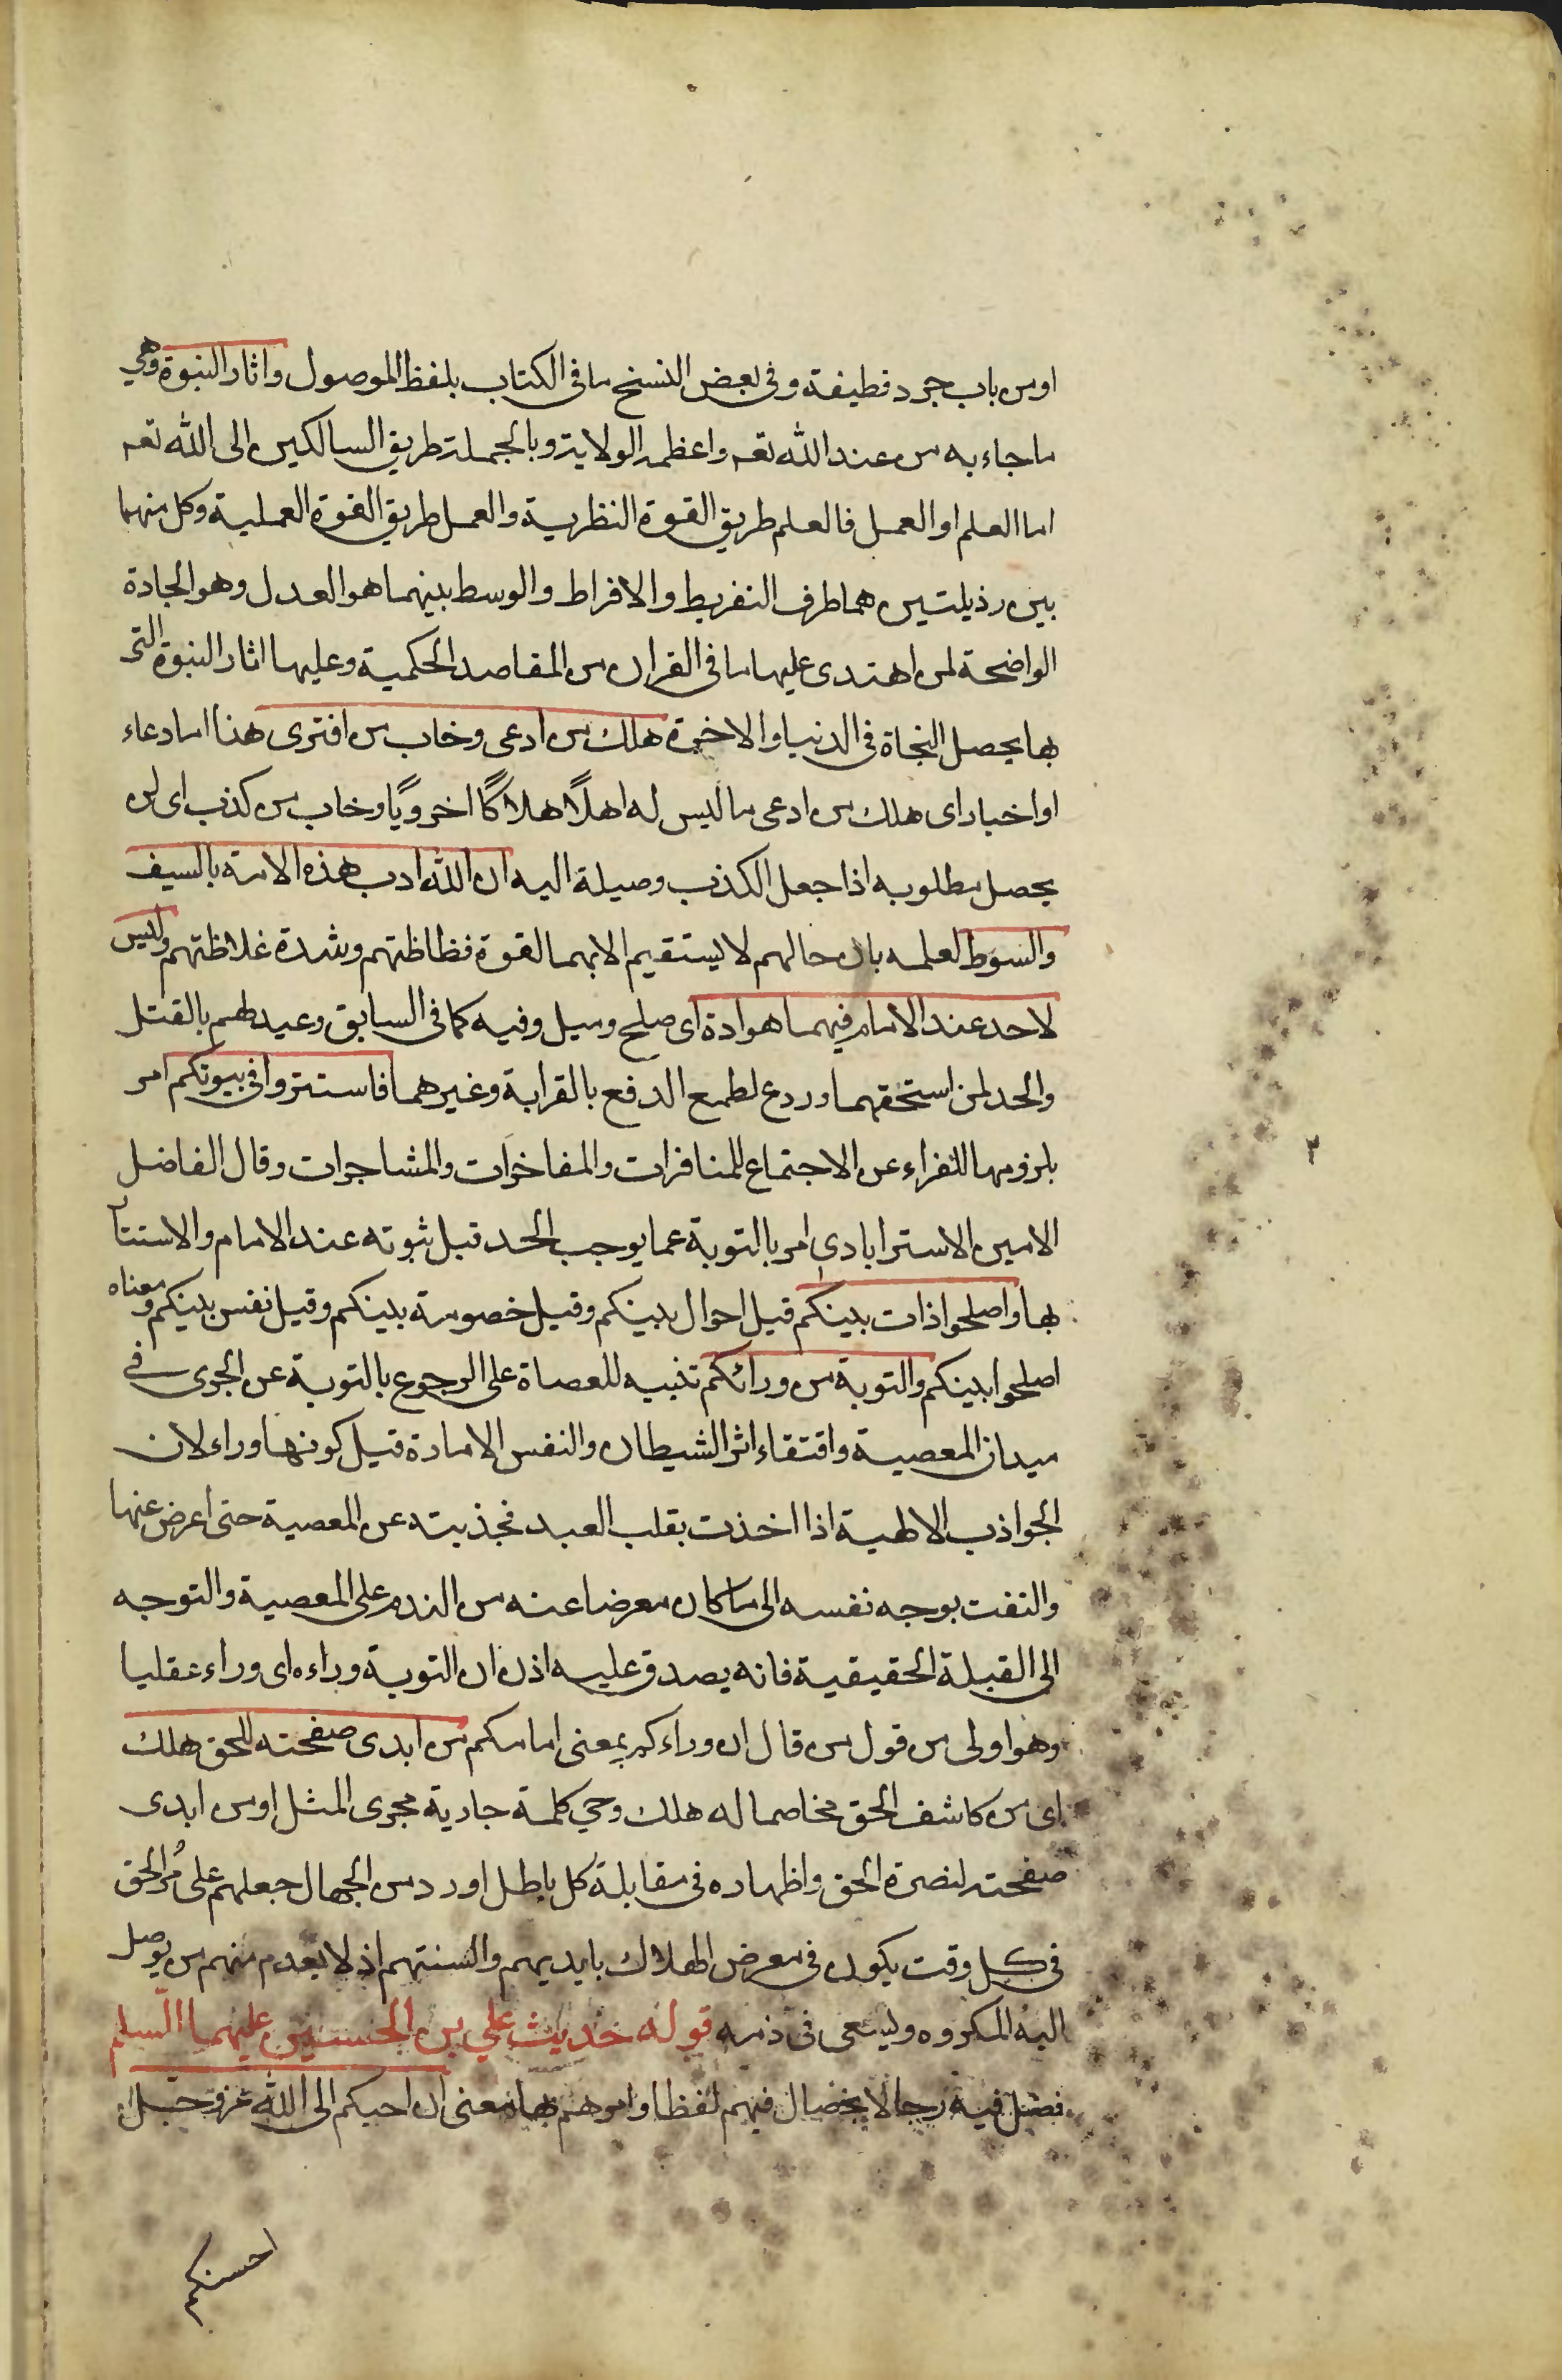 او من باب جرد قطيفة وفى بعض النسخ ما فى الكتاب بلفظ الموصول واثار النبوة وهي
ما جاء به من عند الله تعه واعظمه الولاية وبالجملة طريق السالكين الى الله تعه
اما العلم او العمل فالعلم طريق القوة النظرية والعمل طريق القوة العملية وكل منهما
بين رذيلتين هما طرف التفريط والافراط والوسط بينهما هو العدل وهو الجادة
الواضحة لمن اهتدى عليها ما فى القران من المقاصد الحكمية وعليها اثار النبوة التى
بها يحصل النجاة فى الدنيا والاخرة هلك من ادعى وخاب من افترى هذا اما دعاء
او اخبار اى هلك من ادعى ما ليس له اهلاً هلاكاً اخرويًا وخاب من كذب اى لن
يحصل مطلوبه اذا جعل الكذب وصيلة اليه ان الله ادب هذه الامة بالسيف
والسوط لعلمه بان حالهم لا يستقيم الا بهما لقوة فظاظتهم وشدة غلاظتهم وليس
لاحد عند الامام فيهما هوادة اى صلح وميل وفيه كما فى السابق وعيد لهم بالقتل
والحد لمن استحقهما وردع لطمع الدفع بالقرابة وغيرهما فاستتروا فى بيوتكم امر
بلزومها للفراء عن الاجتماع للمنافرات والمفاخرات والمشاجرات وقال الفاضل
الامين الاسترابادى امر بالتوبة عما يوجب الحد قبل ثبوته عند الامام والاستتار
بها واصلحوا ذات بينكم قيل احوال بينكم وقيل خصومة بينكم وقيل نفس بينكم ومعناه
اصلحوا بينكم والتوبة من ورائكم تنبيه للعصاة على الرجوع بالتوبة عن الجرى فى
ميدان المعصية واقتفاء اثر الشيطان والنفس الامارة قيل كونها وراء لان
الجواذب الالهية اذا اخذت بقلب العبد فجذبته عن المعصية حتى اعرض عنها
والتفت بوجه نفسه الى ما كان معرضا عنه من الندم على المعصية والتوجه
الى القبلة الحقيقية فانه يصدق عليه اذن ان التوبة وراءه اى وراء عقليا
وهو اولى من قول من قال ان وراءكم بمعنى امامكم من ابدى صفحته للحق هلك
اى من كاشف الحق مخاصما له هلك وهي كلمة جارية مجرى المثل او من ابدى
صفحته لنصرة الحق واظهاره فى مقابلة كل باطل او رد من الجهال جعلهم على مُر الحق
فى كل وقت يكون فى معرض الهلاك بايديهم والسنتهم اذ لا يعدم منهم من يوصل
اليه المكروه وليسعى فى ذمه قوله حديث علي بن الحسين عليهما السلم
فصل فيه رجالا بخصال فيهم لفظا وامرهم بها معنى ان احبكم الى الله عز وجل
احسنكم
٢